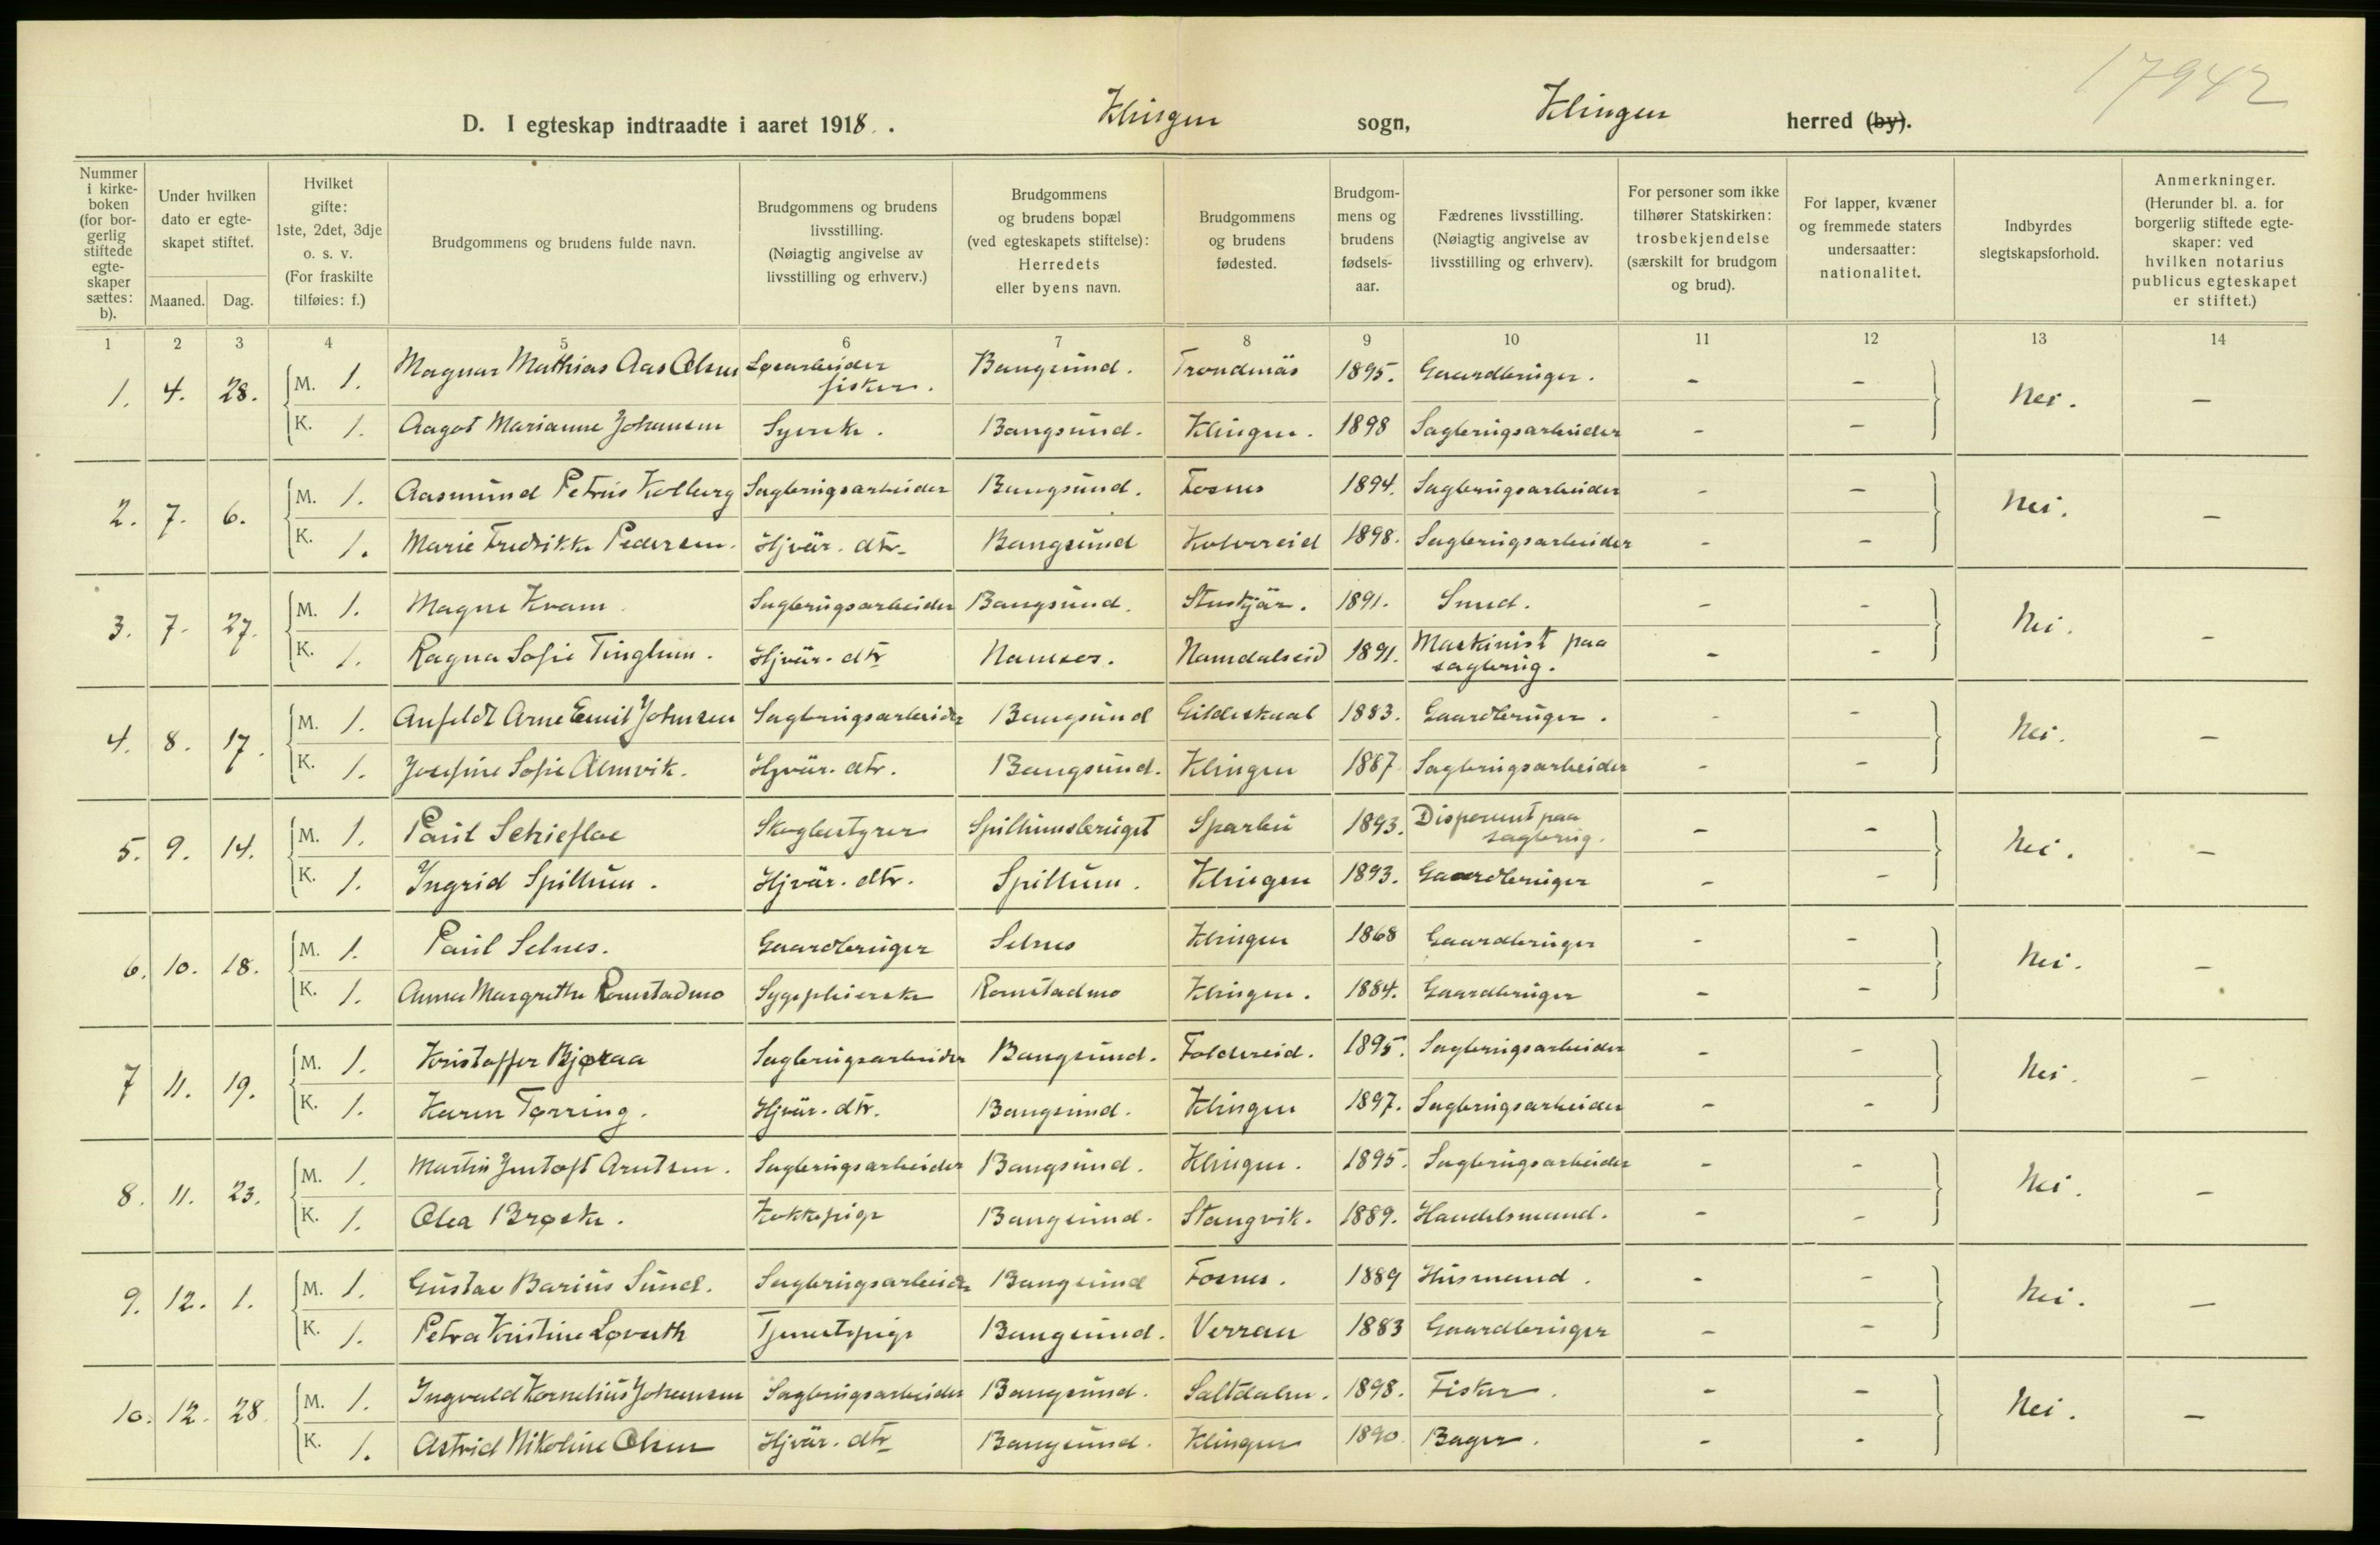 17942
D. I egteskap indtraadte i aaret 1918. Klingen sogn, Klingen herred (by).
Nummer i kirkeboken (for borgerlig stiftede egteskaper sættes: b).
Under hvilken dato er egteskapet stiftet.
Maaned. Dag.
Hvilket gifte: 1ste, 2det, 3dje o. s. v. (For fraskilte tilføies: f.)
Brudgommens og brudens fulde navn.
Brudgommens og brudens livsstilling. (Nøiagtig angivelse av livsstilling og erhverv.)
Brudgommens og brudens bopæl (ved egteskapets stiftelse): Herredets eller byens navn.
Brudgommens og brudens fødested.
Brudgommens og brudens fødselsaar.
Fædrenes livsstilling. (Nøiagtig angivelse av livsstilling og erhverv).
For personer som ikke tilhører Statskirken: trosbekjendelse (særskilt for brudgom og brud).
For lapper, kvæner og fremmede staters undersaatter: nationalitet.
Indbyrdes slegtskapsforhold.
Anmerkninger. (Herunder bl. a. for borgerlig stiftede egteskaper: ved hvilken notarius publicus egteskapet er stiftet.)
1 2 3 4 5 6 7 8 9 10 11 12 13 14
1. 4. 28. M. 1. Magnar Mathias Aas Olsen Løsarbeider fisker. Bangsund. Trondenäs 1895. Gaardbruger. - - Nei. -
K. 1. Aagot Marianne Johansen Syerske. Bangsund. Klingen. 1898 Sagbrugsarbeider - -
2. 7. 6. M. 1. Aasmund Petrus Kolberg Sagbrugsarbeider Bangsund. Fosnes 1894. Sagbrugsarbeider - - Nei. -
K. 1. Marie Fredrikke Pedersen. Hjvär. dtr. Bangsund Kolvereid 1898. Sagbrugsarbeider - -
3. 7. 27. M. 1. Magne Kvam Sagbrugsarbeider Bangsund. Stenkjär. 1891. Smed. - - Nei. -
K. 1. Ragna Sofie Tinglum. Hjvär. dtr Namsos. Namdalseid 1891. Maskinist paa sagbrug. - -
4. 8. 17. M. 1. Anfeldt Arne Emil Johnsen Sagbrugsarbeider Bangsund Gildeskaal 1883. Gaardbruger. - - Nei. -
K. 1. Josefine Sofie Almvik. Hjvär. dtr. Bangsund. Klingen 1887 Sagbrugsarbeider - -
5. 9. 14. M. 1. Paul Schiefloe Skogbestyrer Spillumsbruget Sparbu 1893. Disponent paa sagbrug. - - Nei. -
K. 1. Ingrid Spillum. Hjvär. dtr. Spillum. Klingen 1893. Gaardbruger - -
6. 10. 18. M. 1. Paul Selnes. Gaardbruger Selnes Klingen 1868 Gaardbruger - - Nei. -
K. 1. Anna Margrethe Romstadmo Sygepleierske Romstadmo Klingen. 1884. Gaardbruger - -
7 11. 19. M. 1. Kristoffer Bjøraa Sagbrugsarbeider Bangsund. Foldereid. 1895. Sagbrugsarbeider - - Nei. -
K. 1. Karen Tørring. Hjvär. dtr. Bangsund. Klingen 1897. Sagbrugsarbeider - -
8. 11. 23. M. 1. Martin Arntsen. Sagbrugsarbeider Bangsund. Klingen. 1895. Sagbrugsarbeider - - Nei. -
K. 1. Olea Brøske. Kokkepige Bangsund. Stangvik. 1889. Handelsmand. - -
9. 12. 1. M. 1. Gustav Barius Sund. Sagbrugsarbeider Bangsund Fosnes. 1889 Husmand. - - Nei. -
K. 1. Petra Kristine Løvseth Tjenestepige Bangsund. Verran 1883 Gaardbruger - -
10. 12. 28. M. 1. Ingvald Kornelius Johansen Sagbrugsarbeider Bangsund. Saltdalen. 1898. Fisker. - - Nei. -
K. 1. Astrid Nikoline Olsen Hjvär. dtr Bangsund. Klingen 1890. Bager. - -